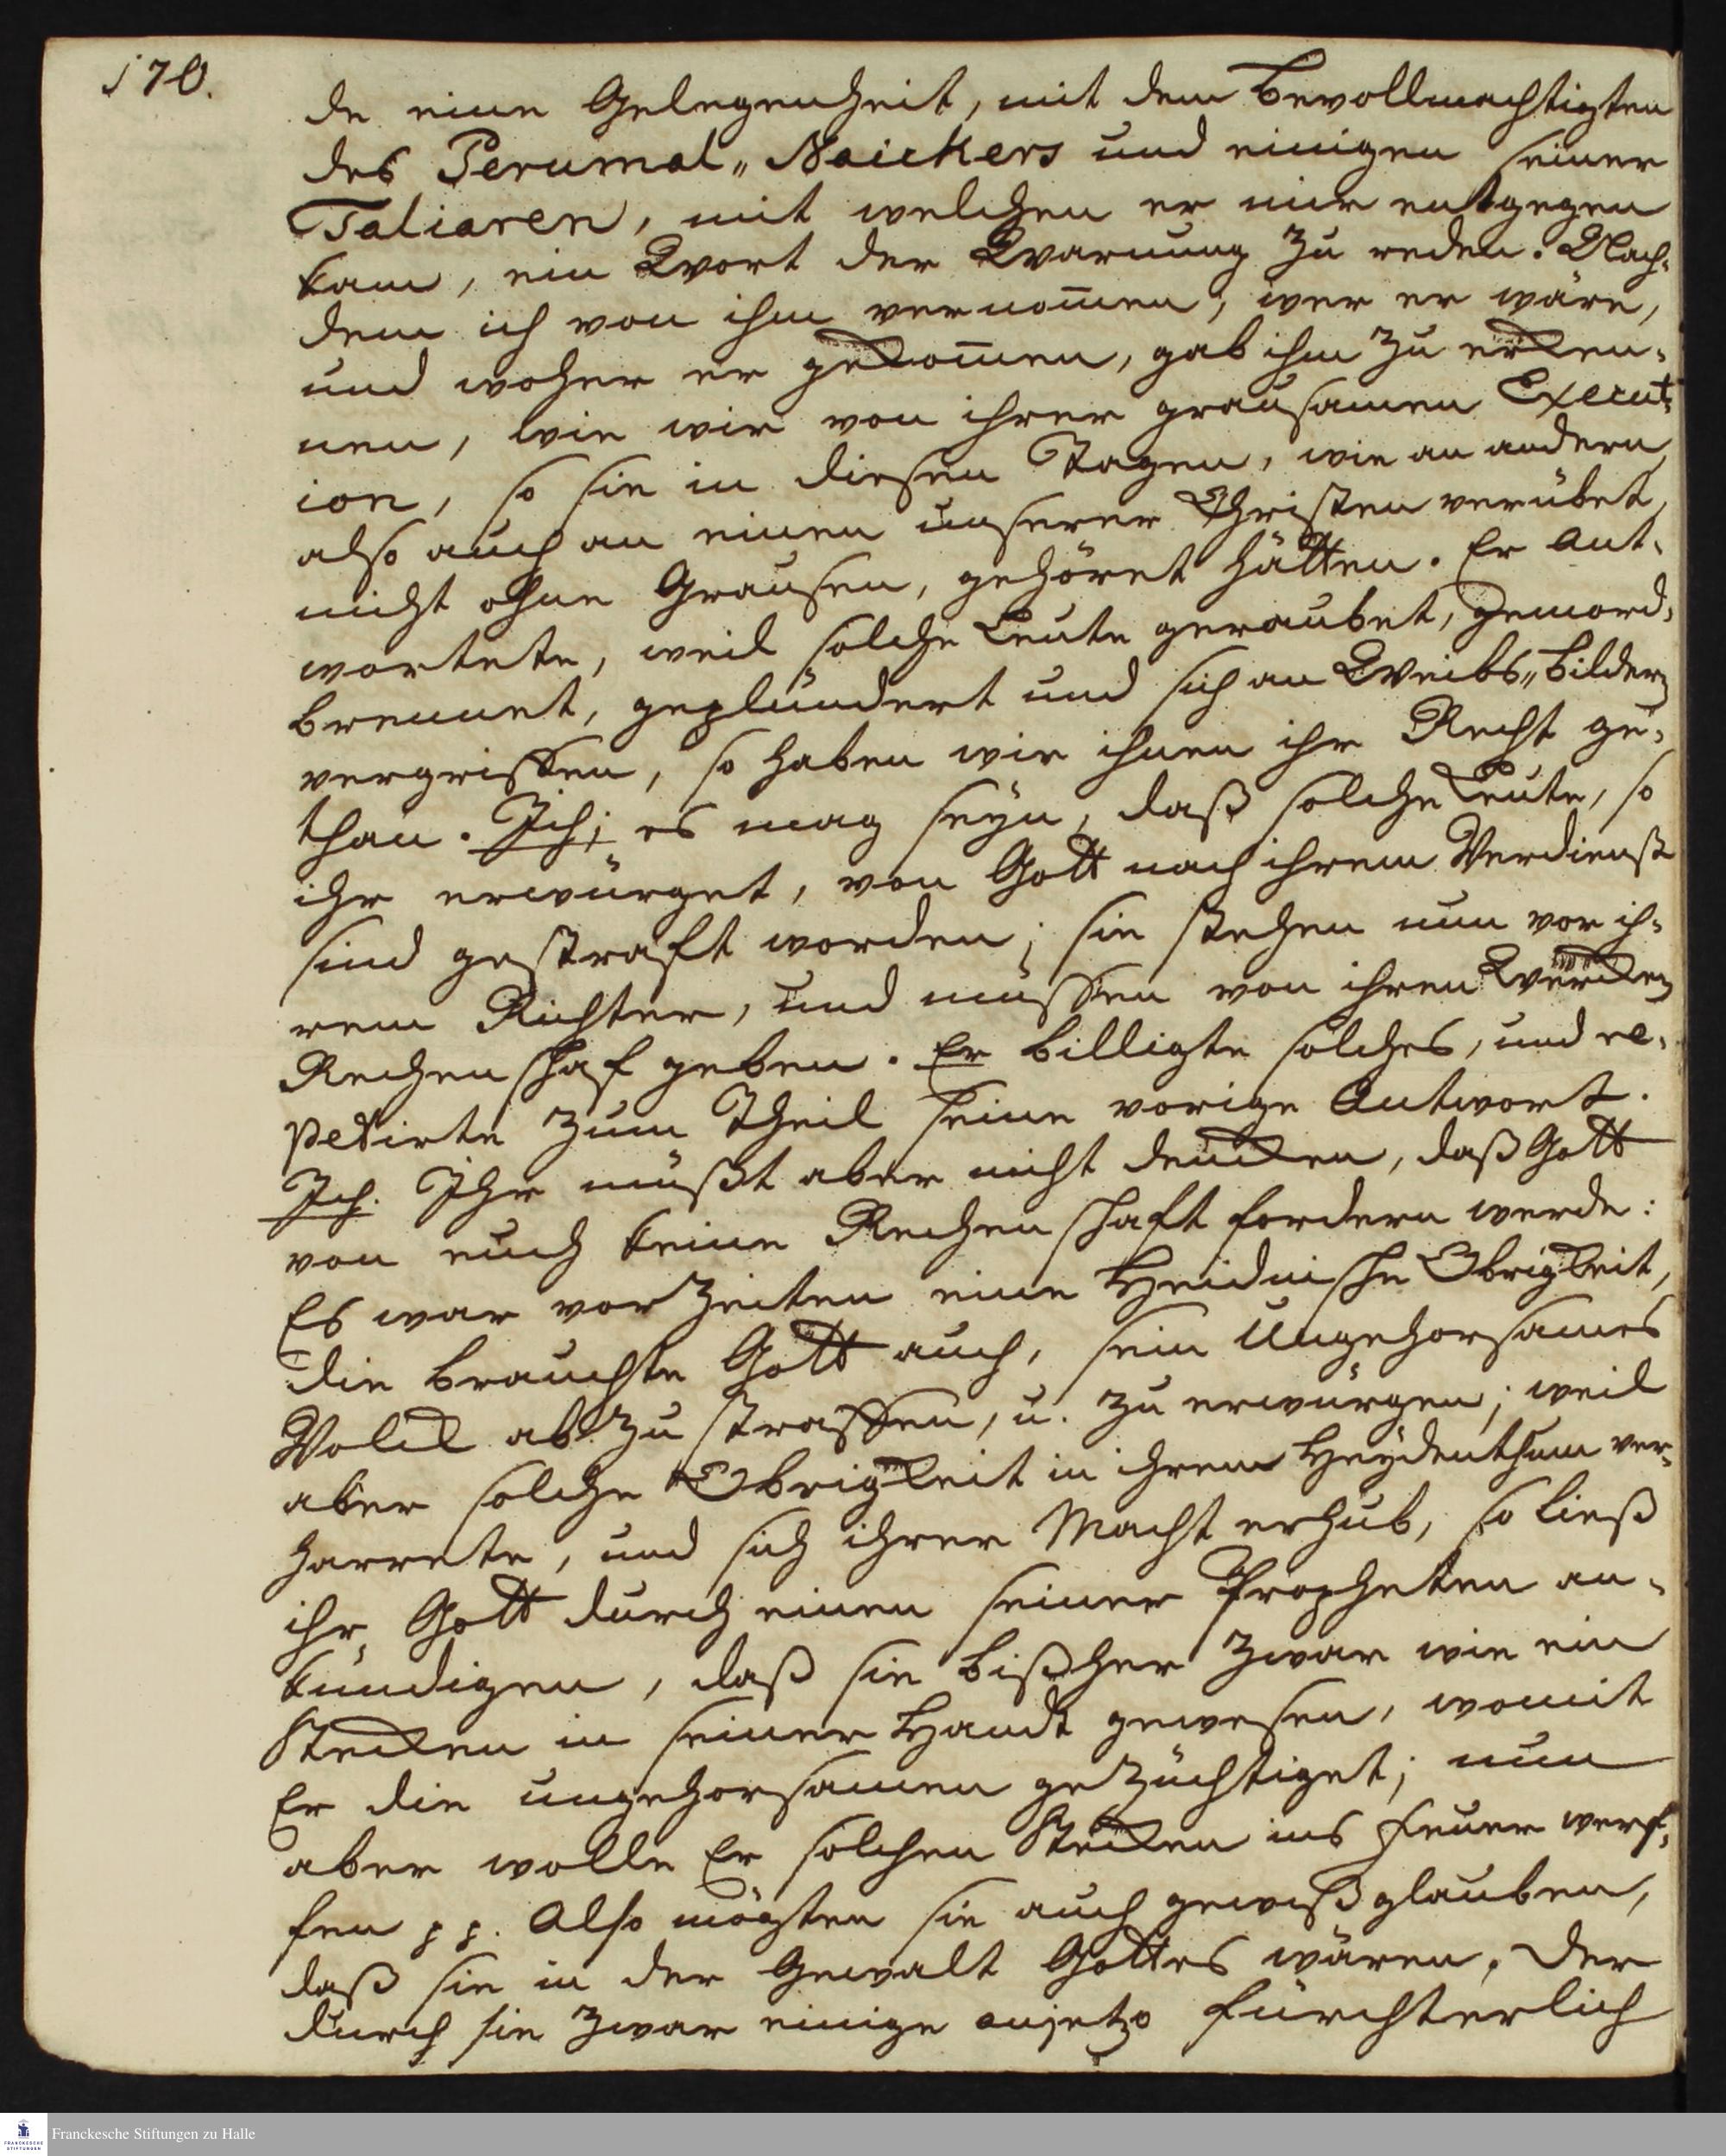 170.
de eine Gelegenheit, mit dem Bevollmachtigten
des Perumal„ Naickers und einigen seiner
Taliaren, mit welchen er mir entgegen
kam, ein Wort der Warnung zu reden. Nach-
dem ich von ihm vernom̄en, wer er wäre,
und woher er gekom̄en, gab ihm zu erken-
nen, wie wir von ihrer grausamen Execut-
ion, so sie in diesen Tagen, wie an andern,
also auch an einen unserer Christen verübet,
nicht ohne Grausen, gehöret hätten. Er ant-
wortete, weil solche Leute geraubet, gemord-
brennet, geplündert und sich an Weibs„Bildern
vergriffen, so haben wir ihnen ihr Recht ge-
than. Ich: es mag seyn, daß solche Leute, so
ihr erwürget, von Gott nach ihrem Verdienst
sind gestraft worden; sie stehen nun vor ih-
rem Richter, und müssen von ihren Wercken
Rechenschaf geben. Er billigte solches, und re-
petirte zum Theil seine vorige Antwort.
Ich. Ihr müßt aber nicht dencken, daß Gott
von euch keine Rechenschaft fordern werde:
Es war vor Zeiten eine Heidnische Obrigkeit,
die brauchte Gott auch, sein Ungehorsames
Volck abzustraffen, u. zu erwürgen; weil
aber solche Obrigkeit in ihrem Heydenthum ver-
harrete, und sich ihrer Macht erhub, so ließ
ihr Gott durch einen seiner Propheten an-
kündigen, daß sie bißher zwar wie ein
Stecken in seiner Handt gewesen, womit
Er die ungehorsamen gezüchtiget; nun
aber wolle Er solchen Stecken ins Feuer werf-
fen pp. Also mögten sie auch gewiß glauben,
daß sie in der Gewalt Gottes wären, der
durch sie zwar einige anjetzo fürchterlich
Franckesche Stiftungen zu Halle
FRANCKESCHE
STIFTUNGEN